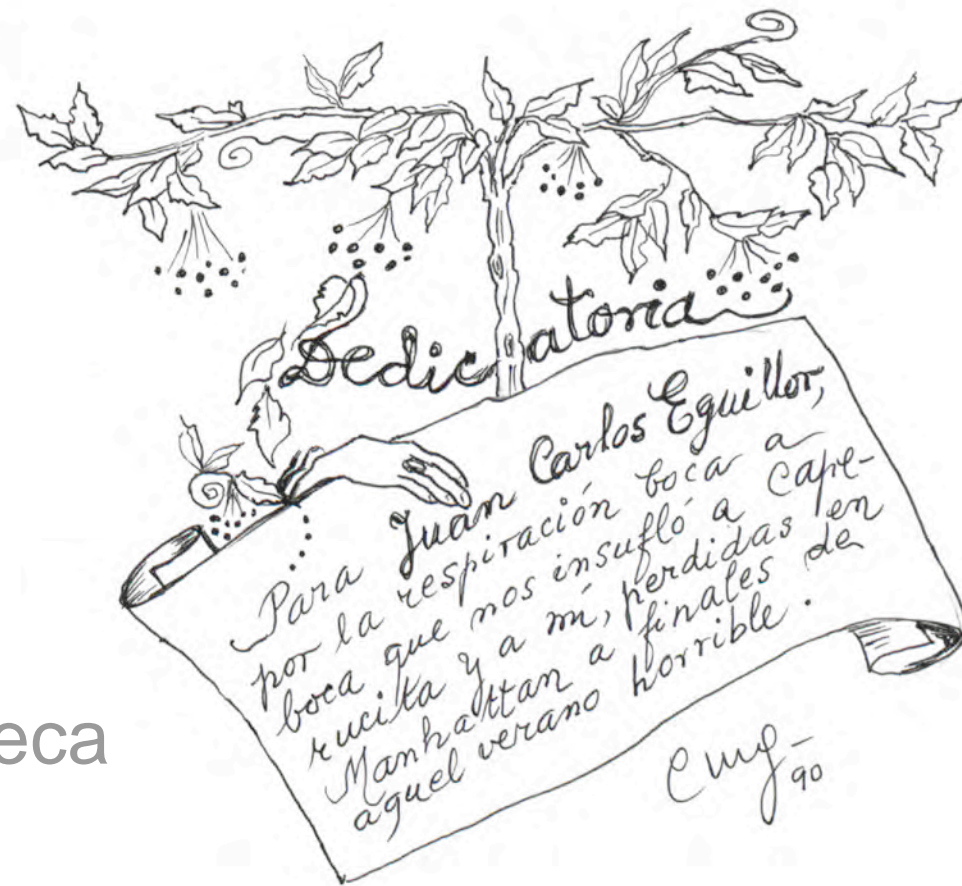 Dedicatoria
Para Juan Carlos Eguillor,
por la respiración boca a
boca que nos insufló a Cape-
rucita y a mí, perdidas en
Manhattan a finales de
aquel verano horrible.
eca
CMG
90